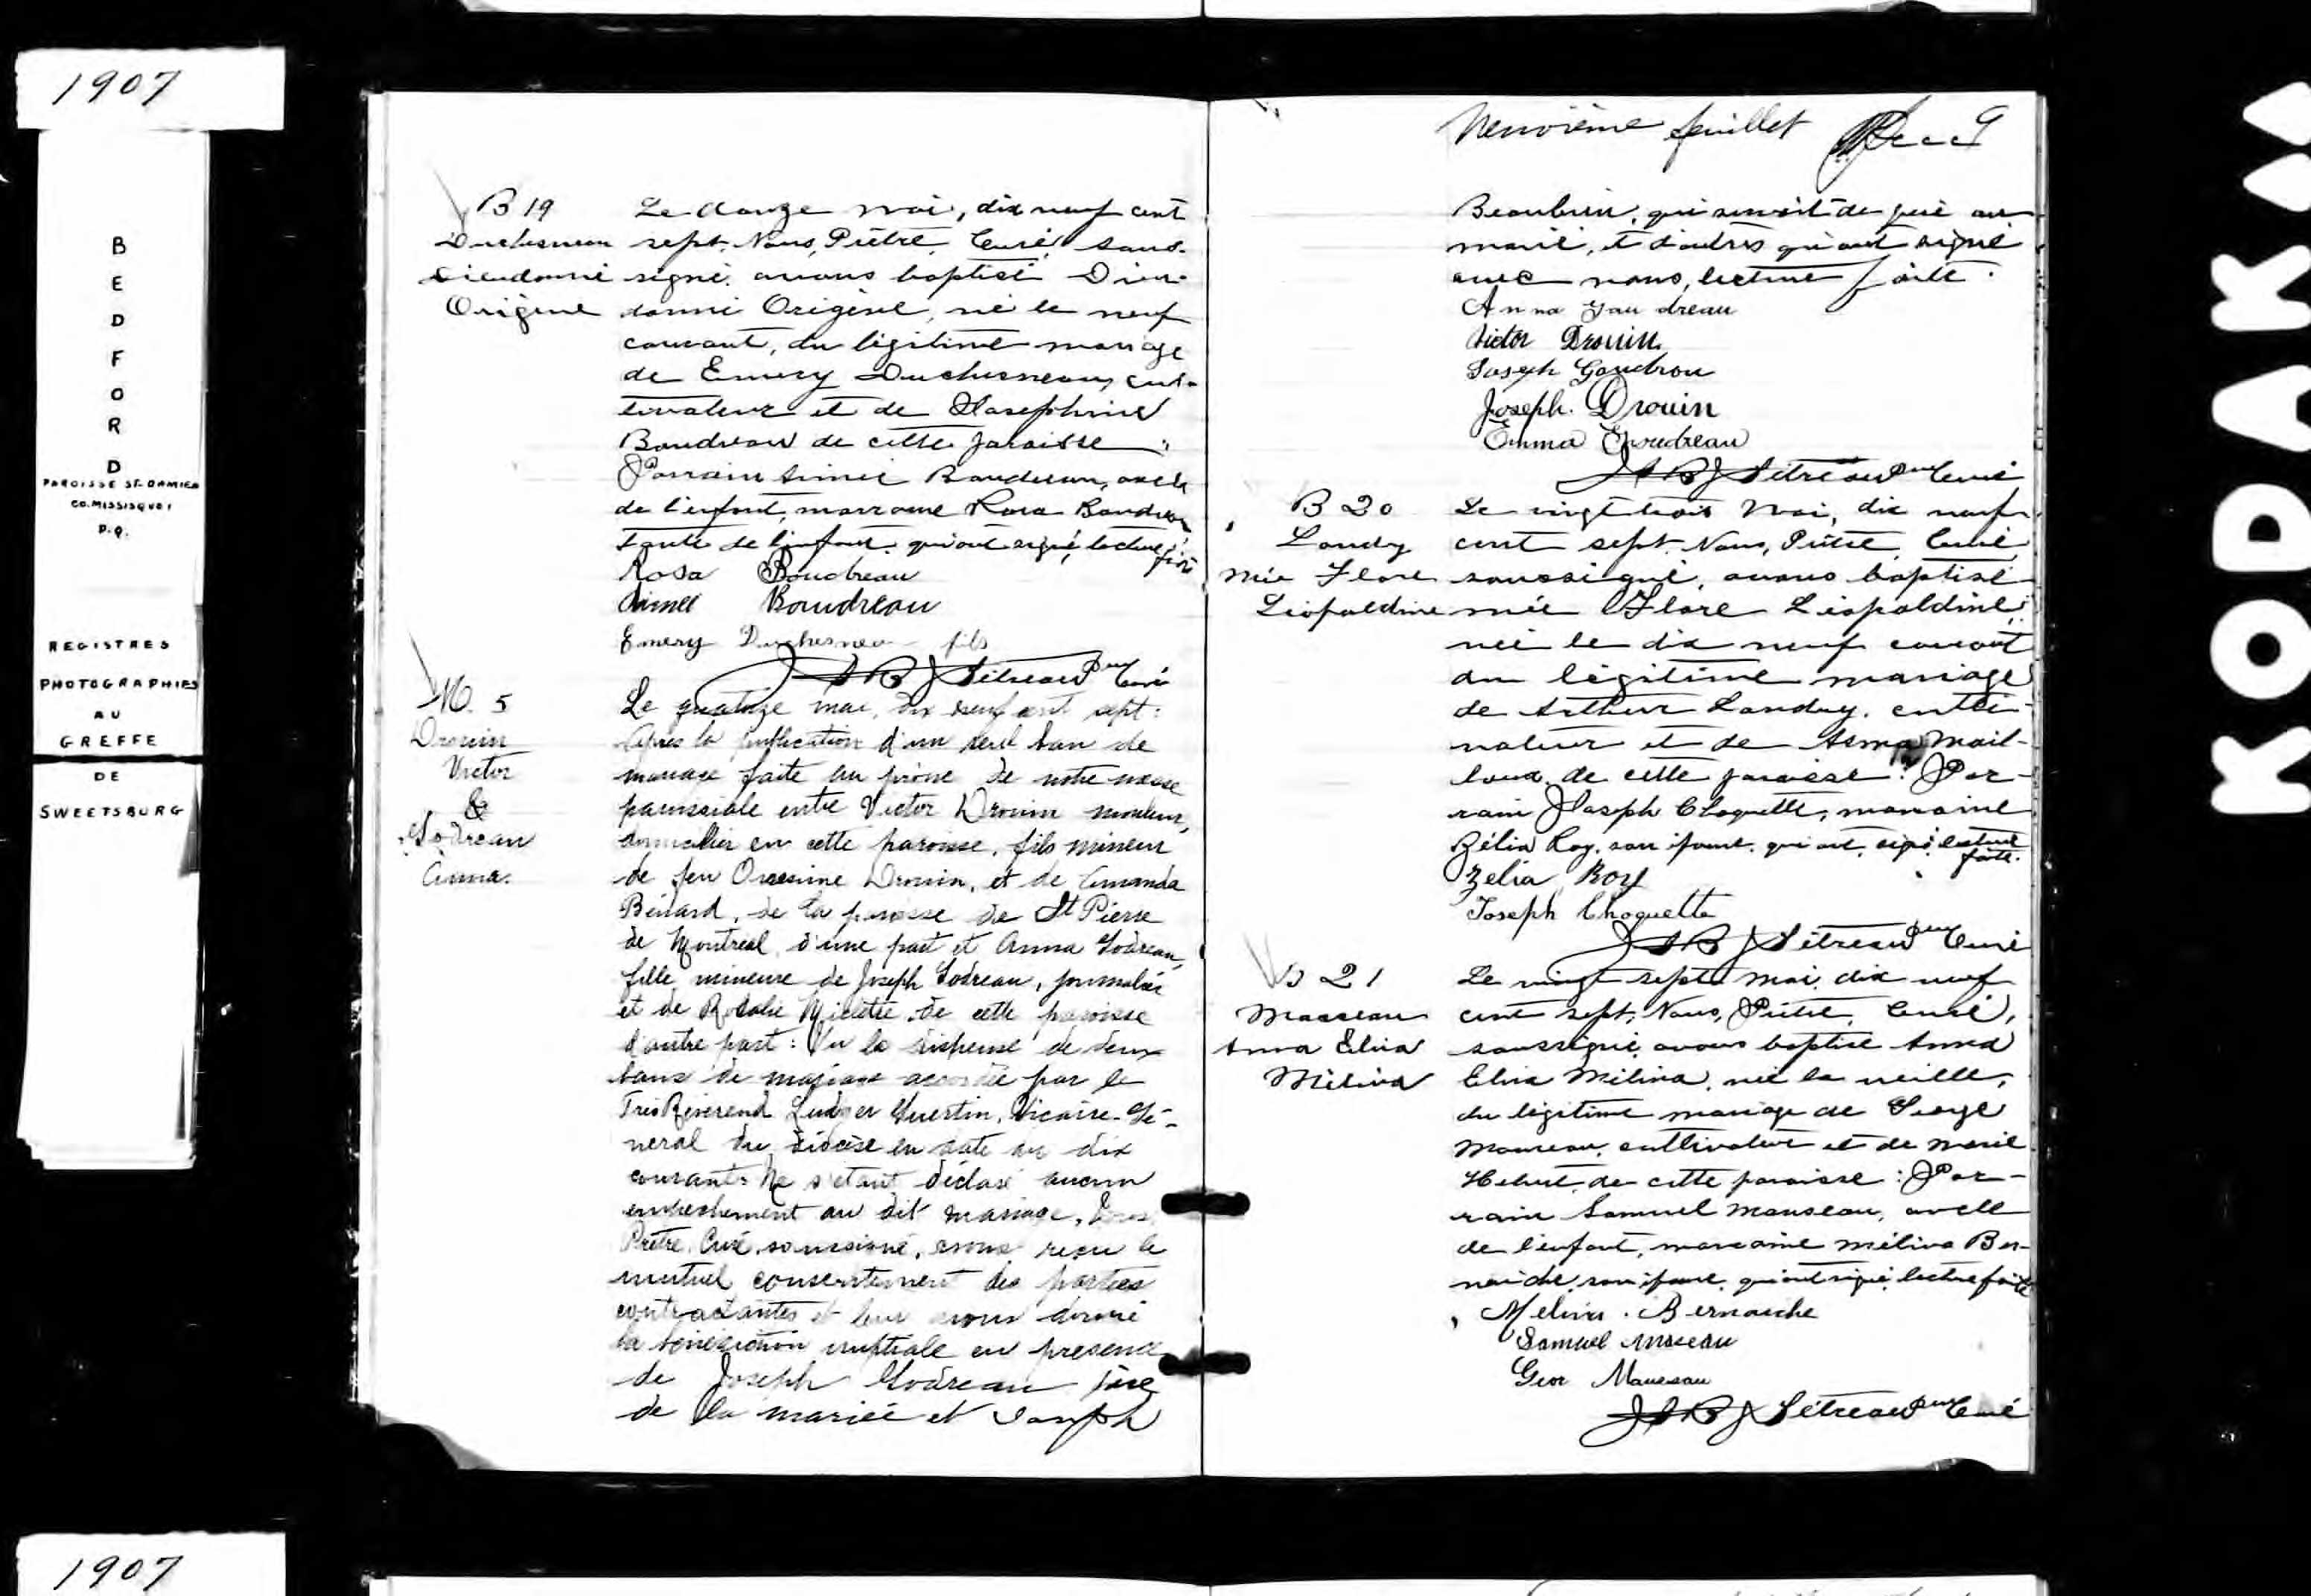 1907
BEDFORD
PAROISSE ST-DAMIEN
CO. MISSISQUOI
P.Q.
REGISTRES
PHOTOGRAPHIES
AU
GREFFE
DE
SWEETSBURG
1907
B 19
Duchesneau
Dieudonné
Origène
Le douze mai, dix neuf cent
sept, Nous, Prêtre, Curé, sous-
signé, avons baptisé Dieu-
donné Origène, né le neuf
courant, du légitime mariage
de Emery Duchesneau, cul-
tivateur et de Josephine
Boudreau de cette paroisse:
Parrain Aimé Boudreau, oncle
de l'enfant, marraine Rosa Boudreau
tante de l'enfant, qui ont signé, lecture faite
Rosa Boudreau
Aimé Boudreau
Emery Duchesneau fils
Ptre Curé
M. 5
Drouin
Victor
&
Godreau
Anna.
Le quatorze mai, dix neuf cent sept:
Après la publication d'un seul ban de
mariage faite au prône de notre messe
paroissiale entre Victor Drouin mouleur,
domicilié en cette paroisse, fils mineur
de feu Onesime Drouin, et de Amanda
Bénard, de la paroisse de St Pierre
de Montreal, d'une part et Anna Godreau,
fille mineure de Joseph Godreau, journalier
et de Rosalie de cette paroisse
d'autre part: Vu la dispense de deux
bans de mariage accordée par le
Très Révérend Ludger Guertin, Vicaire-Gé-
néral du diocèse en date du dix
courant: Ne s'étant déclaré aucun
empêchement au dit mariage, Nous,
Prêtre, Curé, soussigné, avons reçu le
mutuel consentement des parties
contractantes et leur avons donné
la bénédiction nuptiale en présence
de Joseph Godreau père
de la mariée et Joseph
Neuvième feuillet 9
Beaubien, qui servait de père au
marié, et d'autres qui ont signé
avec nous, lecture faite.
Anna Gaudreau
Victor Drouin
Joseph Goudrou
Joseph. Drouin
Emma Goudreau
Ptre Curé
B 20
Landry
Mie Flore
Léopoldine
Le vingt trois Mai, dix neuf
cent sept, Nous, Prêtre, Curé,
soussigné, avons baptisé
Mie Flore Léopoldine,
née le dix neuf courant
du légitime mariage
de Arthur Landry, culti-
vateur et de Mail-
loux de cette paroisse: Par-
rain Joseph Choquette, marraine
Zélia Roy, son épouse, qui ont signé, lecture
faite.
Zelia Roy
Joseph Choquette
Ptre Curé
B 21
Manseau
Anna Elisa
Mélina
Le vingt sept mai, dix neuf
cent sept, Nous, Prêtre, Curé,
soussigné, avons baptisé Anna
Elisa Mélina, née la veille,
du légitime mariage de George
Manseau, cultivateur et de Marie
Hebert, de cette paroisse: Par-
rain Samuel Manseau, oncle
de l'enfant, marraine Mélina Ber-
naiche, son épouse, qui ont signé, lecture faite
Melina. Bernaiche
Samuel Maseau
Geor Manseau
Ptre Curé
KODAK